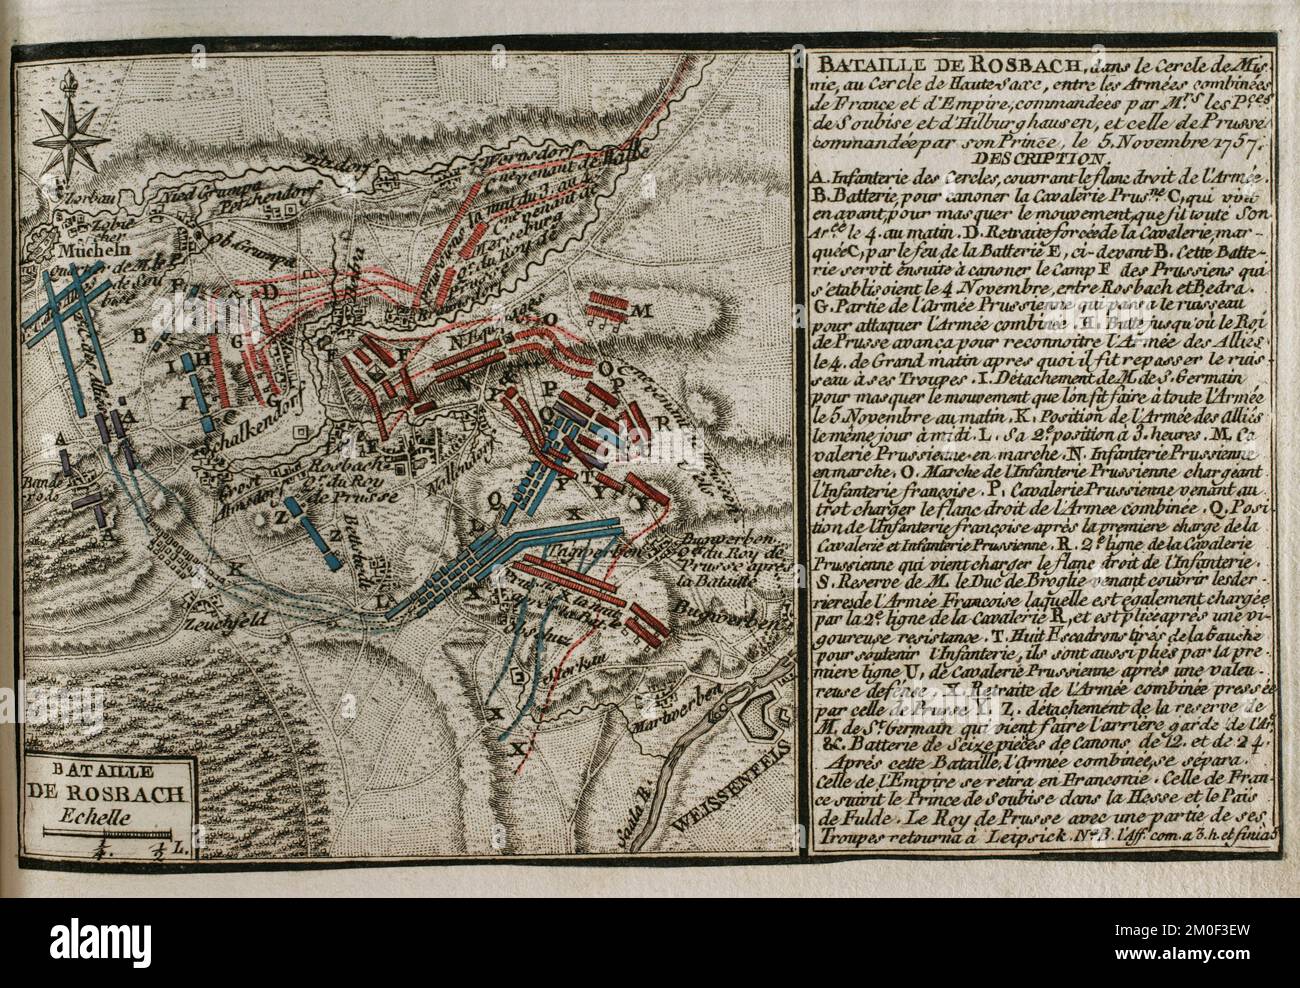 BATAILLE DE ROSBACH, dans le Cercle de Mis-
nie, au Cercle de Haute Saxe, entre les Armées combinées
de France et d'Empire, commandées par Mrs les Pces
de Soubise et d'Hilburghausen, et celle de Prusse
commandée par son Prince, le 5. Novembre 1757.
DESCRIPTION.
A. Infanterie des Cercles, couvrant le flanc droit de l'Armée.
B. Batterie, pour canoner la Cavalerie Prusne. C, qui vint
en avant, pour masquer le mouvement, que fit toute son
Arée le 4. au matin. D. Retraite forcée de la Cavalerie, mar-
quée C, par le feu de la Batterie E, ci-devant B. Cette Batte-
rie servit ensuite à canoner le Camp F des Prussiens qui
s'etablissoient le 4 Novembre, entre Rosbach et Bedra.
G. Partie de l'Armée Prussienne qui passa le ruisseau
pour attaquer l'Armée combinée. H. Butte jusqu'où le Roi
de Prusse avança pour reconnoître l'Armée des Alliés
le 4. de Grand matin apres quoi il fit repasser le ruis-
seau à ses Troupes. I. Détachement de M. de S. Germain
pour masquer le mouvement que l'on fit faire à toute l'Armée
le 5 Novembre au matin. K. Position de l'Armée des Alliés
le même jour à midi. L. Sa 2e. position à 3. heures. M. Ca
valerie Prussienne en marche. N. Infanterie Prussienne
en marche. O. Marche de l'Infanterie Prussienne chargeant
l'Infanterie françoise. P. Cavalerie Prussienne venant au
trot charger le flanc droit de l'Armée combinée. Q. Posi
tion de l'Infanterie françoise après la premiere charge de la
Cavalerie et Infanterie Prussienne. R. 2e. ligne de la Cavalerie
Prussienne qui vient charger le flanc droit de l'Infanterie.
S. Reserve de M. le Duc de Broglie venant couvrir les der-
rieres de l'Armée Francoise laquelle est egalement chargée
par la 2e. ligne de la Cavalerie R, et est pliée après une vi-
goureuse resistance. T. Huit Escadrons tirés de la Gauche
pour soutenir l'Infanterie, ils sont aussi pliés par la pre-
miere ligne U, de Cavalerie Prussienne après une valeu-
reuse défense. X. Retraite de l'Armée combinée pressée
par celle de Prusse Y. Z. détachement de la reserve de
M. de St. Germain qui vient faire l'arriére garde de l'Ar.
&. Batterie de Seize pièces de Canons, de 12. et de 24.
Après cette Bataille, l'Armée combinée, se sépara.
Celle de l'Empire se retira en Franconie. Celle de Fran-
ce suivit le Prince de Soubise dans la Hesse et le Païs
de Fulde. Le Roy de Prusse avec une partie de ses
Troupes retourna à Leipsick. Na. B. l'Aff. com. a 3. h. et finia 5
Zorbau
Zobic
ker
Mücheln
Nied Grumpa
Petzkendorf
Ob. Grumpa
Wernsdorf
Cne venant de Halle
Cne venant de
Marseburg
Schalkendorf
Grost
Almsdorf
Rosbach
Qr. du Roy
de Prusse
Nahlendorf
Bedra
Zeuchfeld
Tagwerben
Bugwerben
Qer du Roy de
Prusse après
la Bataille
Bugwerben
Obschuz
Storkau
Martwerben
Saala R.
WEISSENFELS
BATAILLE
DE ROSBACH
Echelle
1/4. 1/2 L.
alamy
Image ID: 2M0F3EW
www.alamy.com